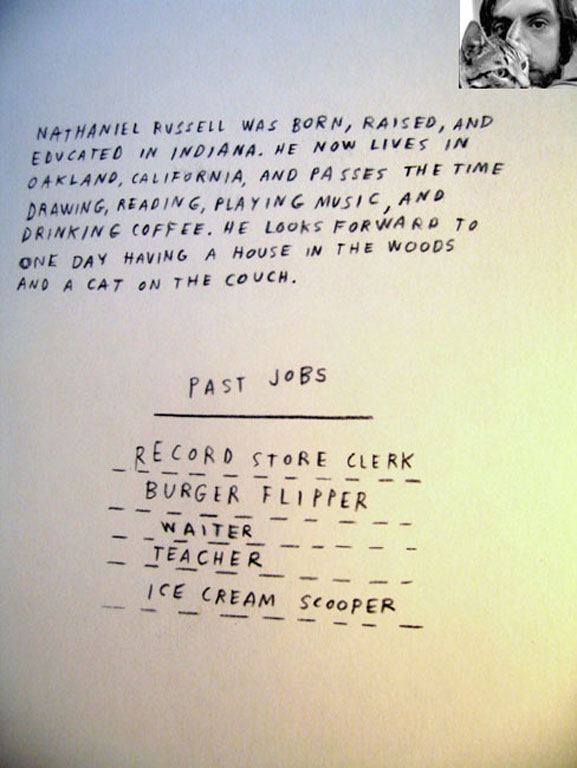 NATHANIEL RUSSELL WAS BORN, RAISED, AND
EDUCATED IN INDIANA. HE NOW LIVES IN
OAKLAND, CALIFORNIA, AND PASSES THE TIME
DRAWING, READING, PLAYING MUSIC, AND
DRINKING COFFEE. HE LOOKS FORWARD TO
ONE DAY HAVING A HOUSE IN THE WOODS
AND A CAT ON THE COUCH.
PAST JOBS
RECORD STORE CLERK
BURGER FLIPPER
WAITER
TEACHER
ICE CREAM SCOOPER